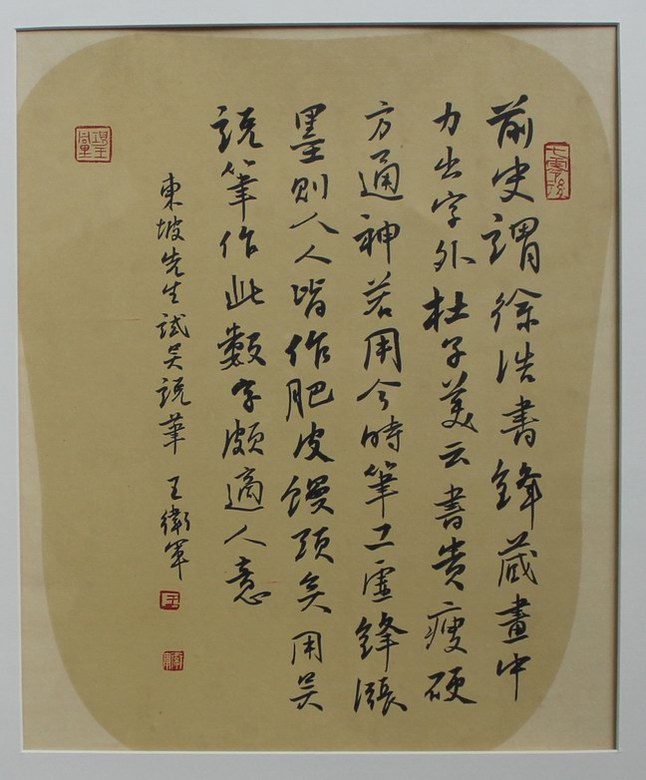 前史謂徐浩書鋒藏畫中
力出字外杜子美云書貴瘦硬
方通神若用今時筆工虛鋒漲
墨則人人皆作肥皮饅頭矣用吳
說筆作此數字頗適人意
東坡先生試吳說筆 王衛軍